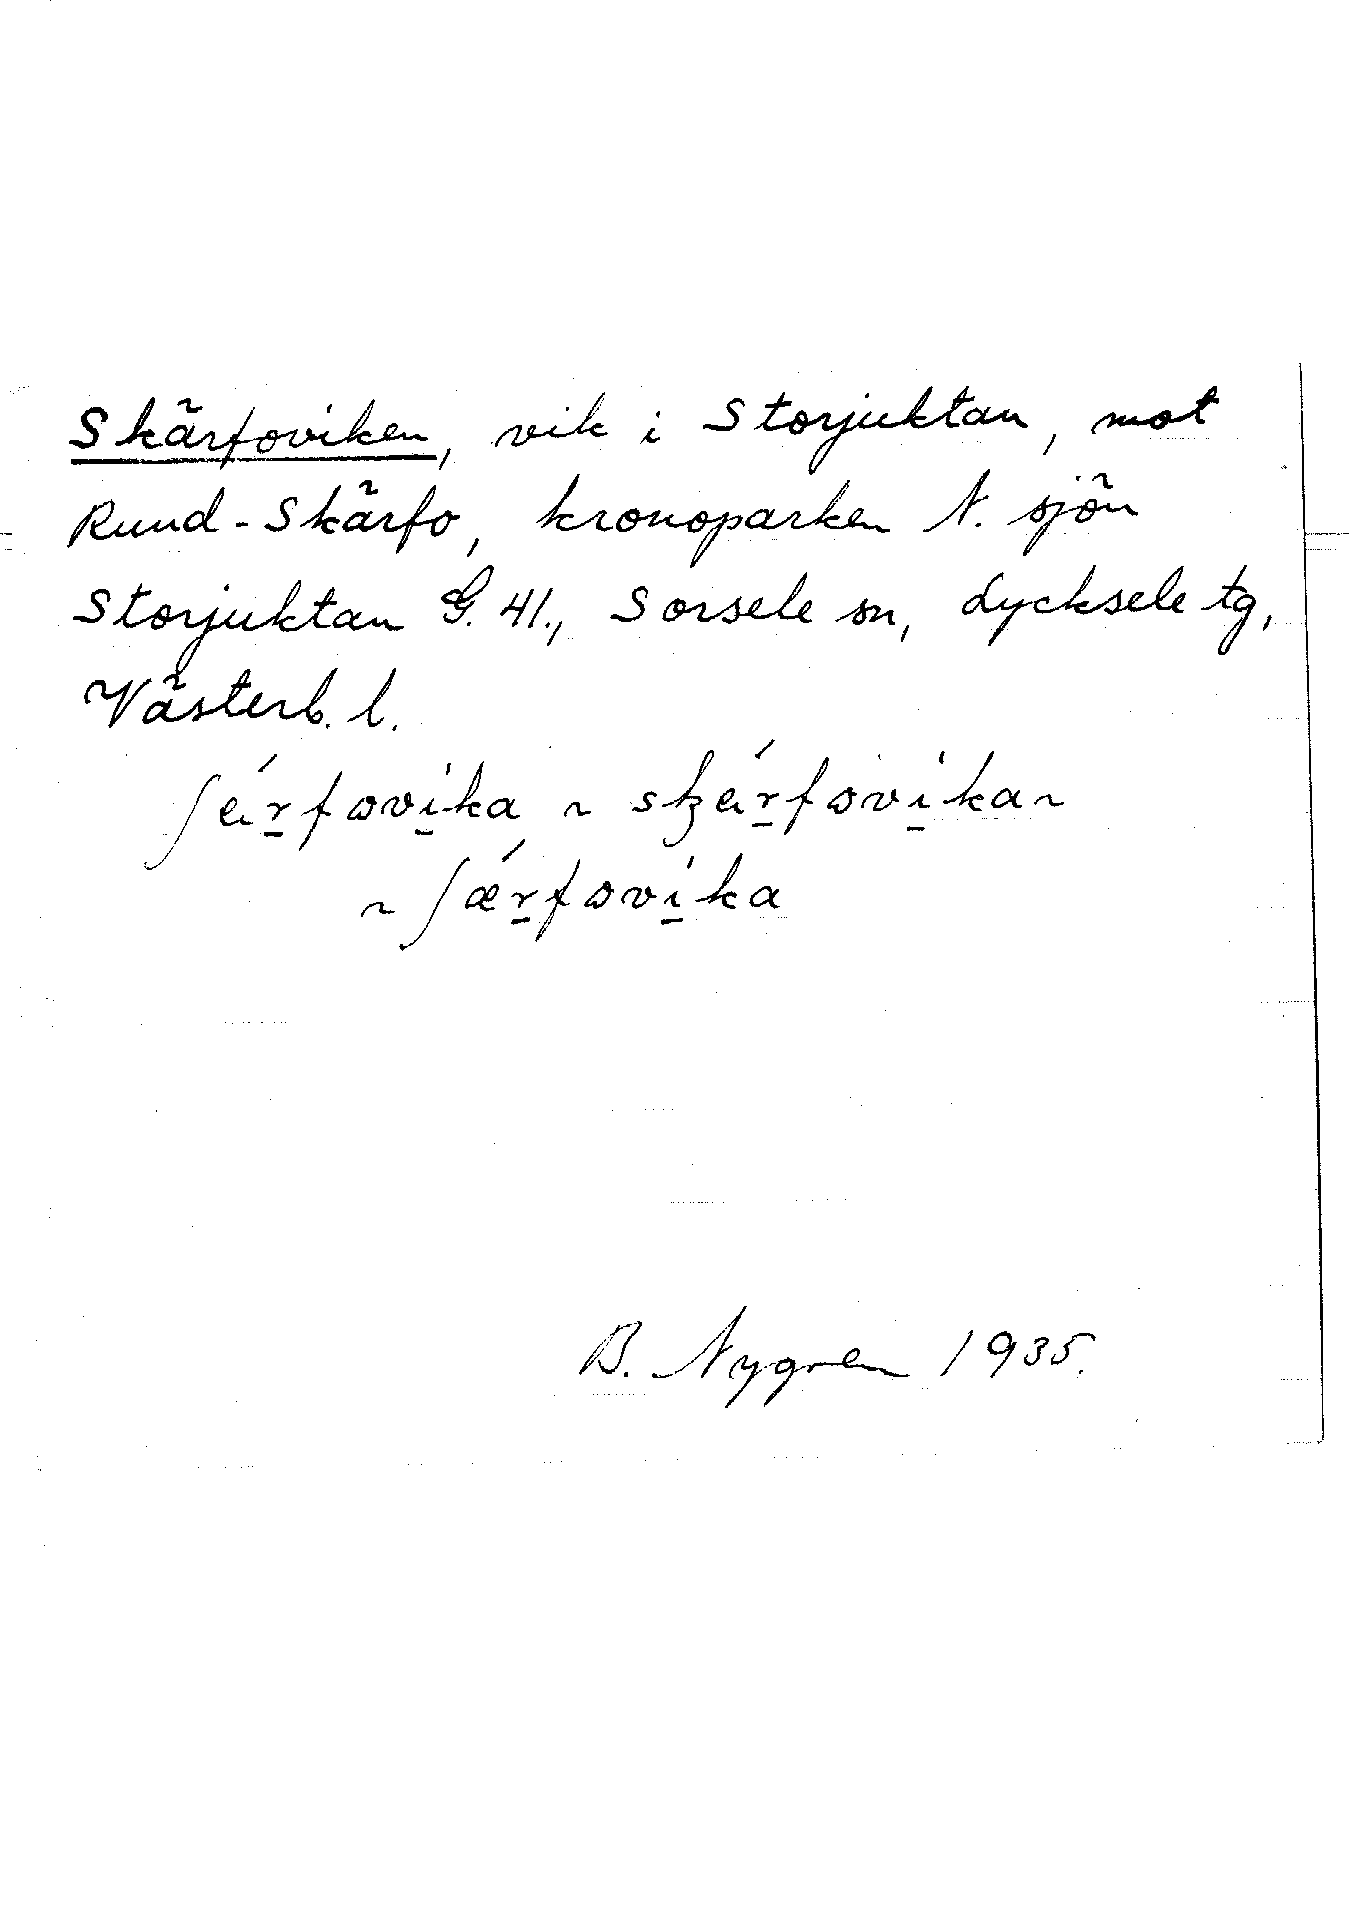 Skärfoviken, vik i Storjuktan, mot
Rund-Skärfo, kronoparken N. sjön
Storjuktan G. 41., Sorsele sn, Lycksele tg,
Västerb. l.
ʃérfovika ~ skérfovika ~
~ ʃǽrfovika
B. Nygren 1935.